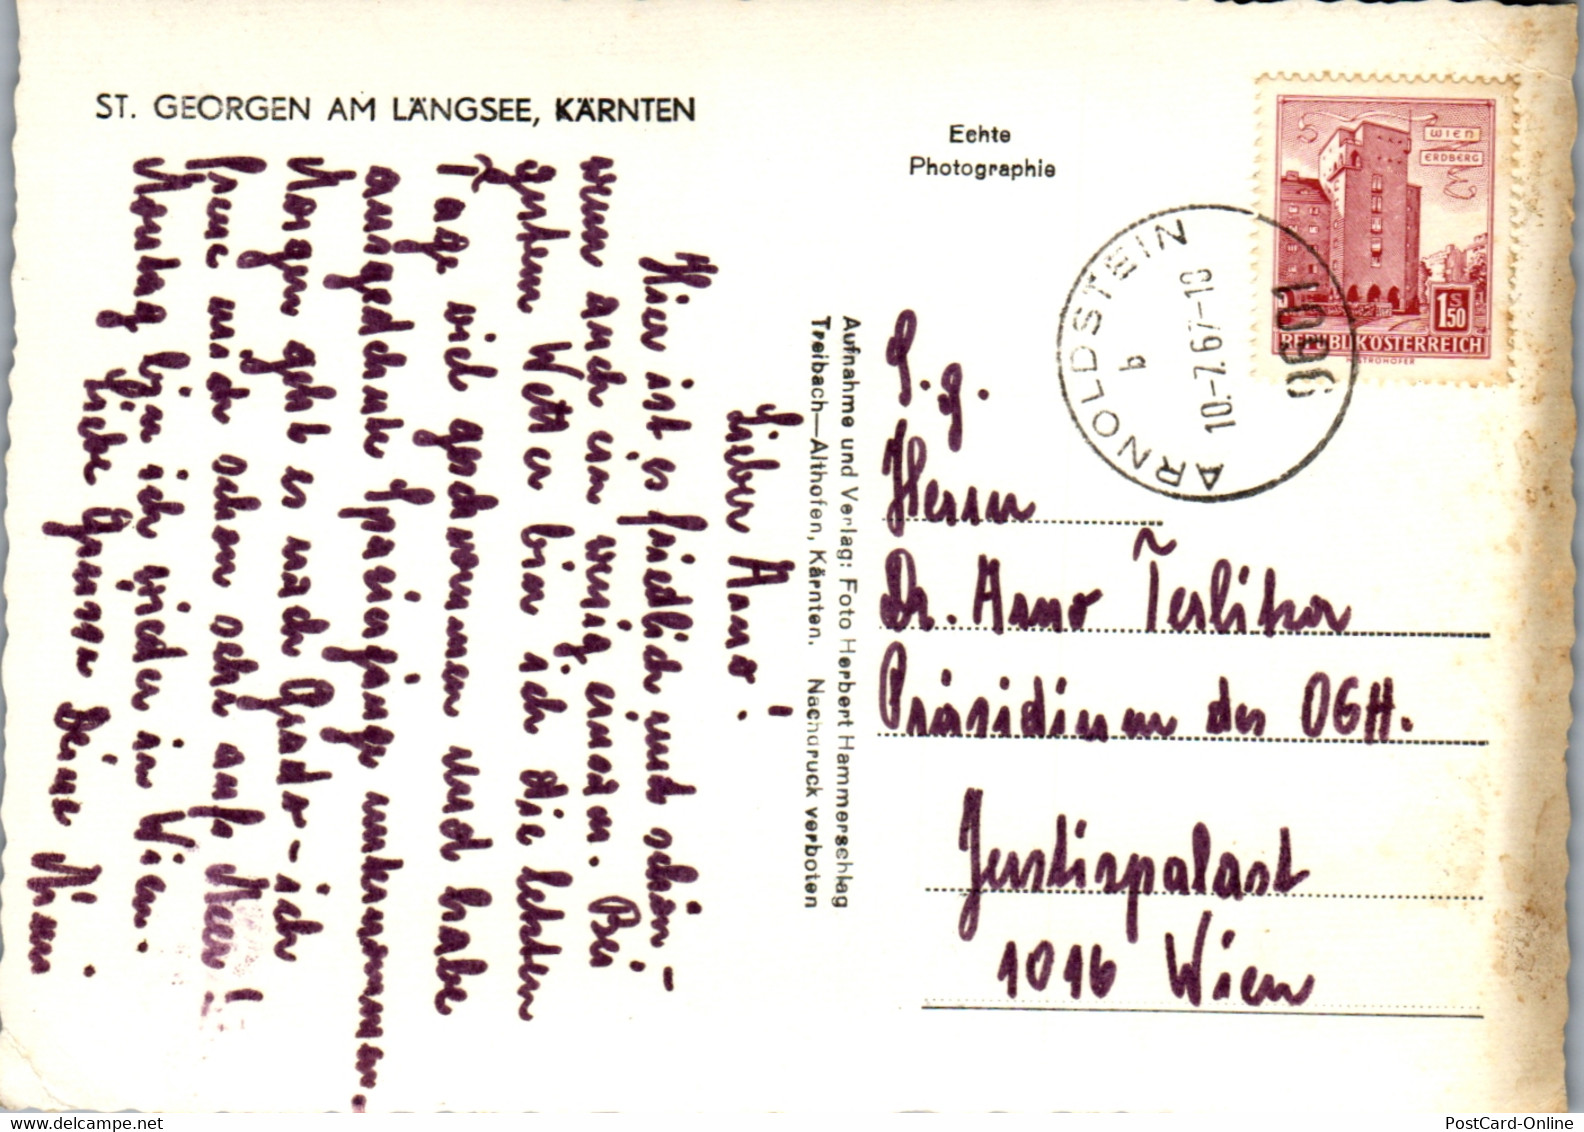 ST. GEORGEN AM LÄNGSEE, KÄRNTEN
Lieber Arno!
Hier ist es friedlich und schön –
wenn auch ein wenig einsam. Bei
gutem Wetter bin ich die letzten
Tage viel geschwommen und habe
ausgedehnte Spaziergänge unternommen.
Morgen geht es nach Grado – ich
freue mich schon sehr aufs Meer!
Montag bin ich wieder in Wien.
Liebe Grüsse Deine
Aufnahme und Verlag: Foto Herbert Hammerschlag
Treibach—Althofen, Kärnten. Nachdruck verboten
Echte
Photographie
WIEN
ERDBERG
1S50
REPUBLIK ÖSTERREICH
STROHOFER
ARNOLDSTEIN
b
10.-7.67-18
9601
S. g.
Herrn
Dr. Arno Terlitza
Präsidium des OGH.
Justizpalast
1016 Wien
PostCard-Online